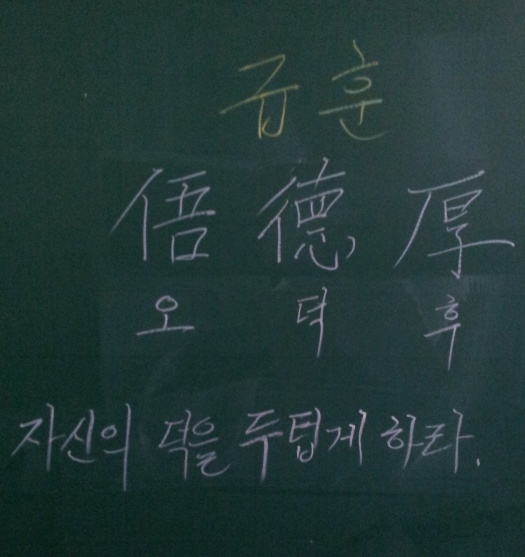 급훈
悟德厚
오 덕 후
자신의 덕을 두텁게 하라.